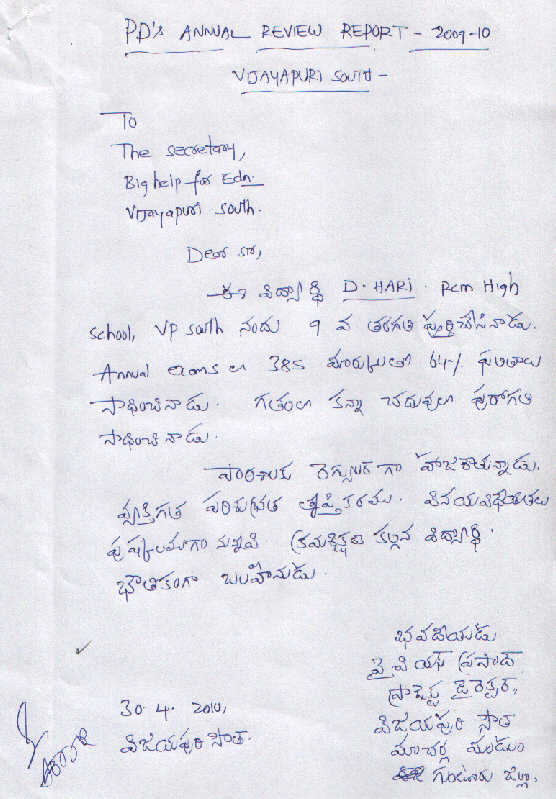 PD's ANNUAL REVIEW REPORT - 2009-10
VIJAYAPURI SOUTH -
To
The secretary,
Big help for Edn.
Vijayapuri South.
Dear sir,
ఈ విద్యార్థి D. HARI. PCM High
School, VP South నందు 9 వ తరగతి పూర్తిచేసినాడు.
Annual లో 385 మార్కులతో 64% ఫలితాలు
సాధించినాడు. గతంలో కన్నా చదువులో పురోగతి
సాధించినాడు.
పాఠశాలకు రెగ్యులర్ గా హాజరౌతున్నాడు.
వ్యక్తిగత పరిశుభ్రత తృప్తికరము. వినయవిధేయతలు
పుష్కలముగా నున్నవి. క్రమశిక్షణ కల్గిన విద్యార్థి.
భౌతికంగా బలహీనుడు.
భవదీయుడు
వై వి యస్ ప్రసాద్
ప్రాజెక్టు డైరెక్టర్,
30.4.2010,
విజయపురి సౌత్
విజయపురి సౌత్.
మాచర్ల మండలం
గుంటూరు జిల్లా.